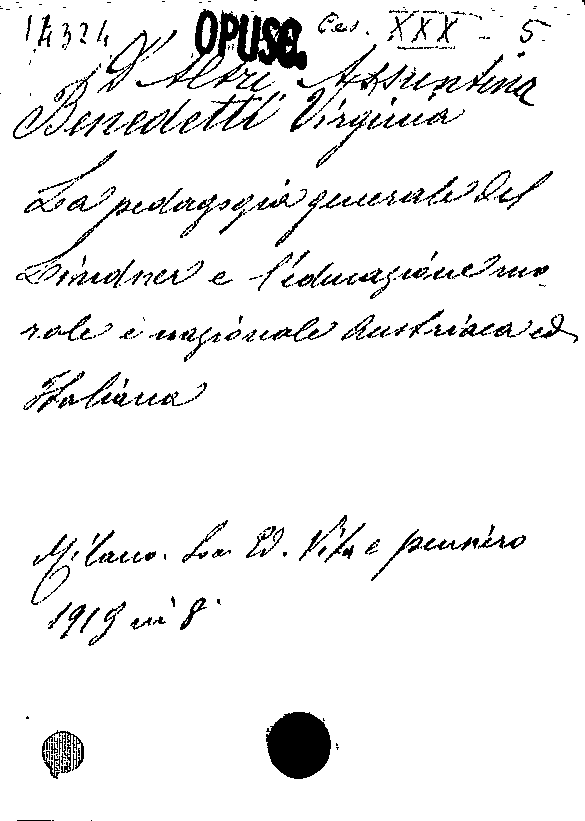 14324 OPUSC. Ces. XXX - 5
D'Altri Assuntina
Benedetti Virginia
La pedagogia generale del
Lindner e l'educazione mo-
rale e nazionale Austriaca ed
Italiana
Milano. Soc. Ed. Vita e pensiero
1919 in 8°